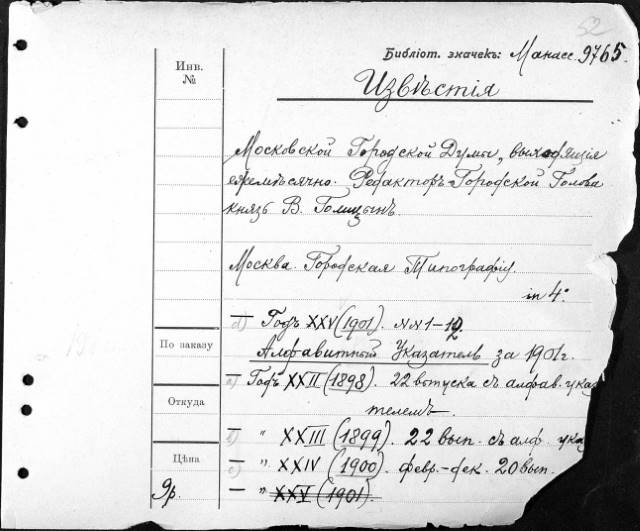 52
Библіот. значекъ: Манасс. 9765.
Инв.
№
Извѣстія
Московской Городской Думы, выходящія
ежемѣсячно. Редакторъ-Городской Голова
князь В. Голицынъ.
Москва. Городская Типографія
in 4°
d) Годъ XXV (1901). NN 1-12
По заказу
Алфавитный Указатель за 1901 г.
a) Годъ XXII (1898). 22 выпуска съ алфав. указ
телемъ.
Откуда
b) " XXIII (1899). 22 вып. съ алф. указ
Цѣна
c) " XXIV (1900). февр.-дек. 20 вып.
9р.
— " XXV (1901).